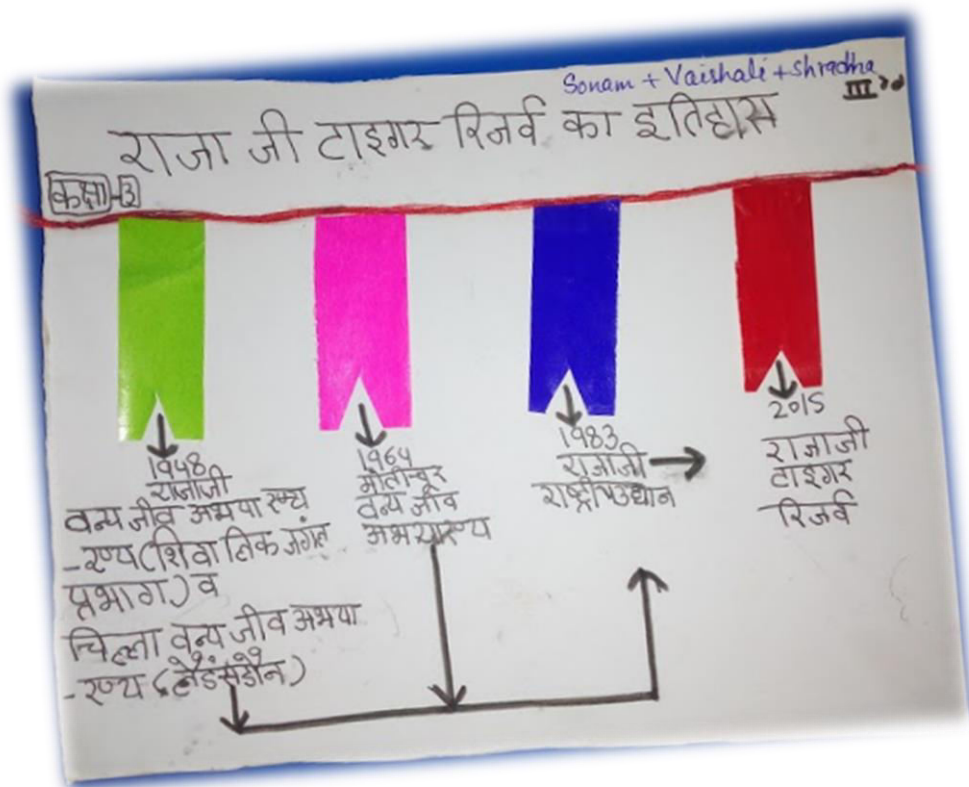 Sonam + Vaishali + Shradha
IIIrd
राजा जी टाइगर रिजर्व का इतिहास
कक्षा-3
1948
राजाजी
वन्य जीव अभया रण्य
-रण्य (शिवालिक जगंल
प्रभाग) व
चिल्ला वन्य जीव अभया
-रण्य (लैंडसडौन)
1964
मोतीचूर
वन्य जीव
अभयारण्य
1983
राजाजी
राष्ट्रीय उद्यान
2015
राजाजी
टाइगर
रिजर्व